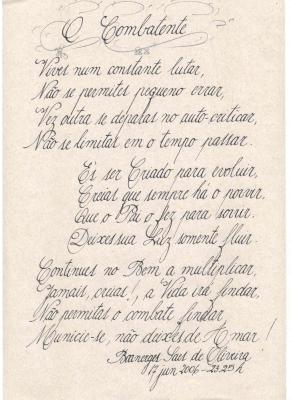 O Combatente
Vives num constante lutar,
Não se permites pequeno errar,
Vez outra se deparas no auto-criticar,
Não se limitar em o tempo passar.
És ser Criado para evoluir,
Creias que sempre há o porvir,
Que o Pai o fez para sorrir.
Deixes sua Luz somente fluir.
Continues no Bem a multiplicar,
Jamais, creias!, a Vida irá findar,
Não permitas o combate findar
Municie-se, não deixes de Amar!
de Oliveira
17 jun 2006 - 23:25h